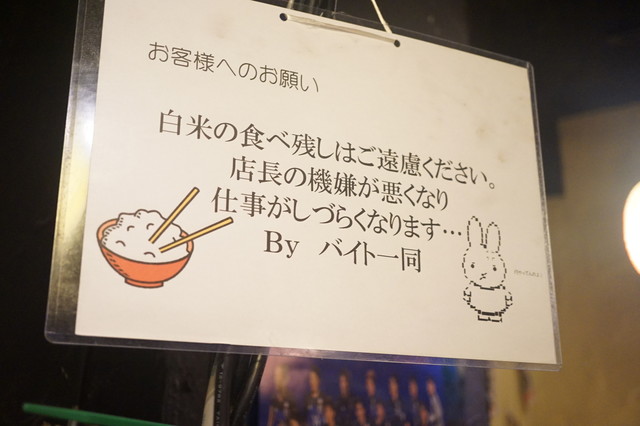 お客様へのお願い
白米の食べ残しはご遠慮ください。
店長の機嫌が悪くなり
仕事がしづらくなります…
By バイト一同